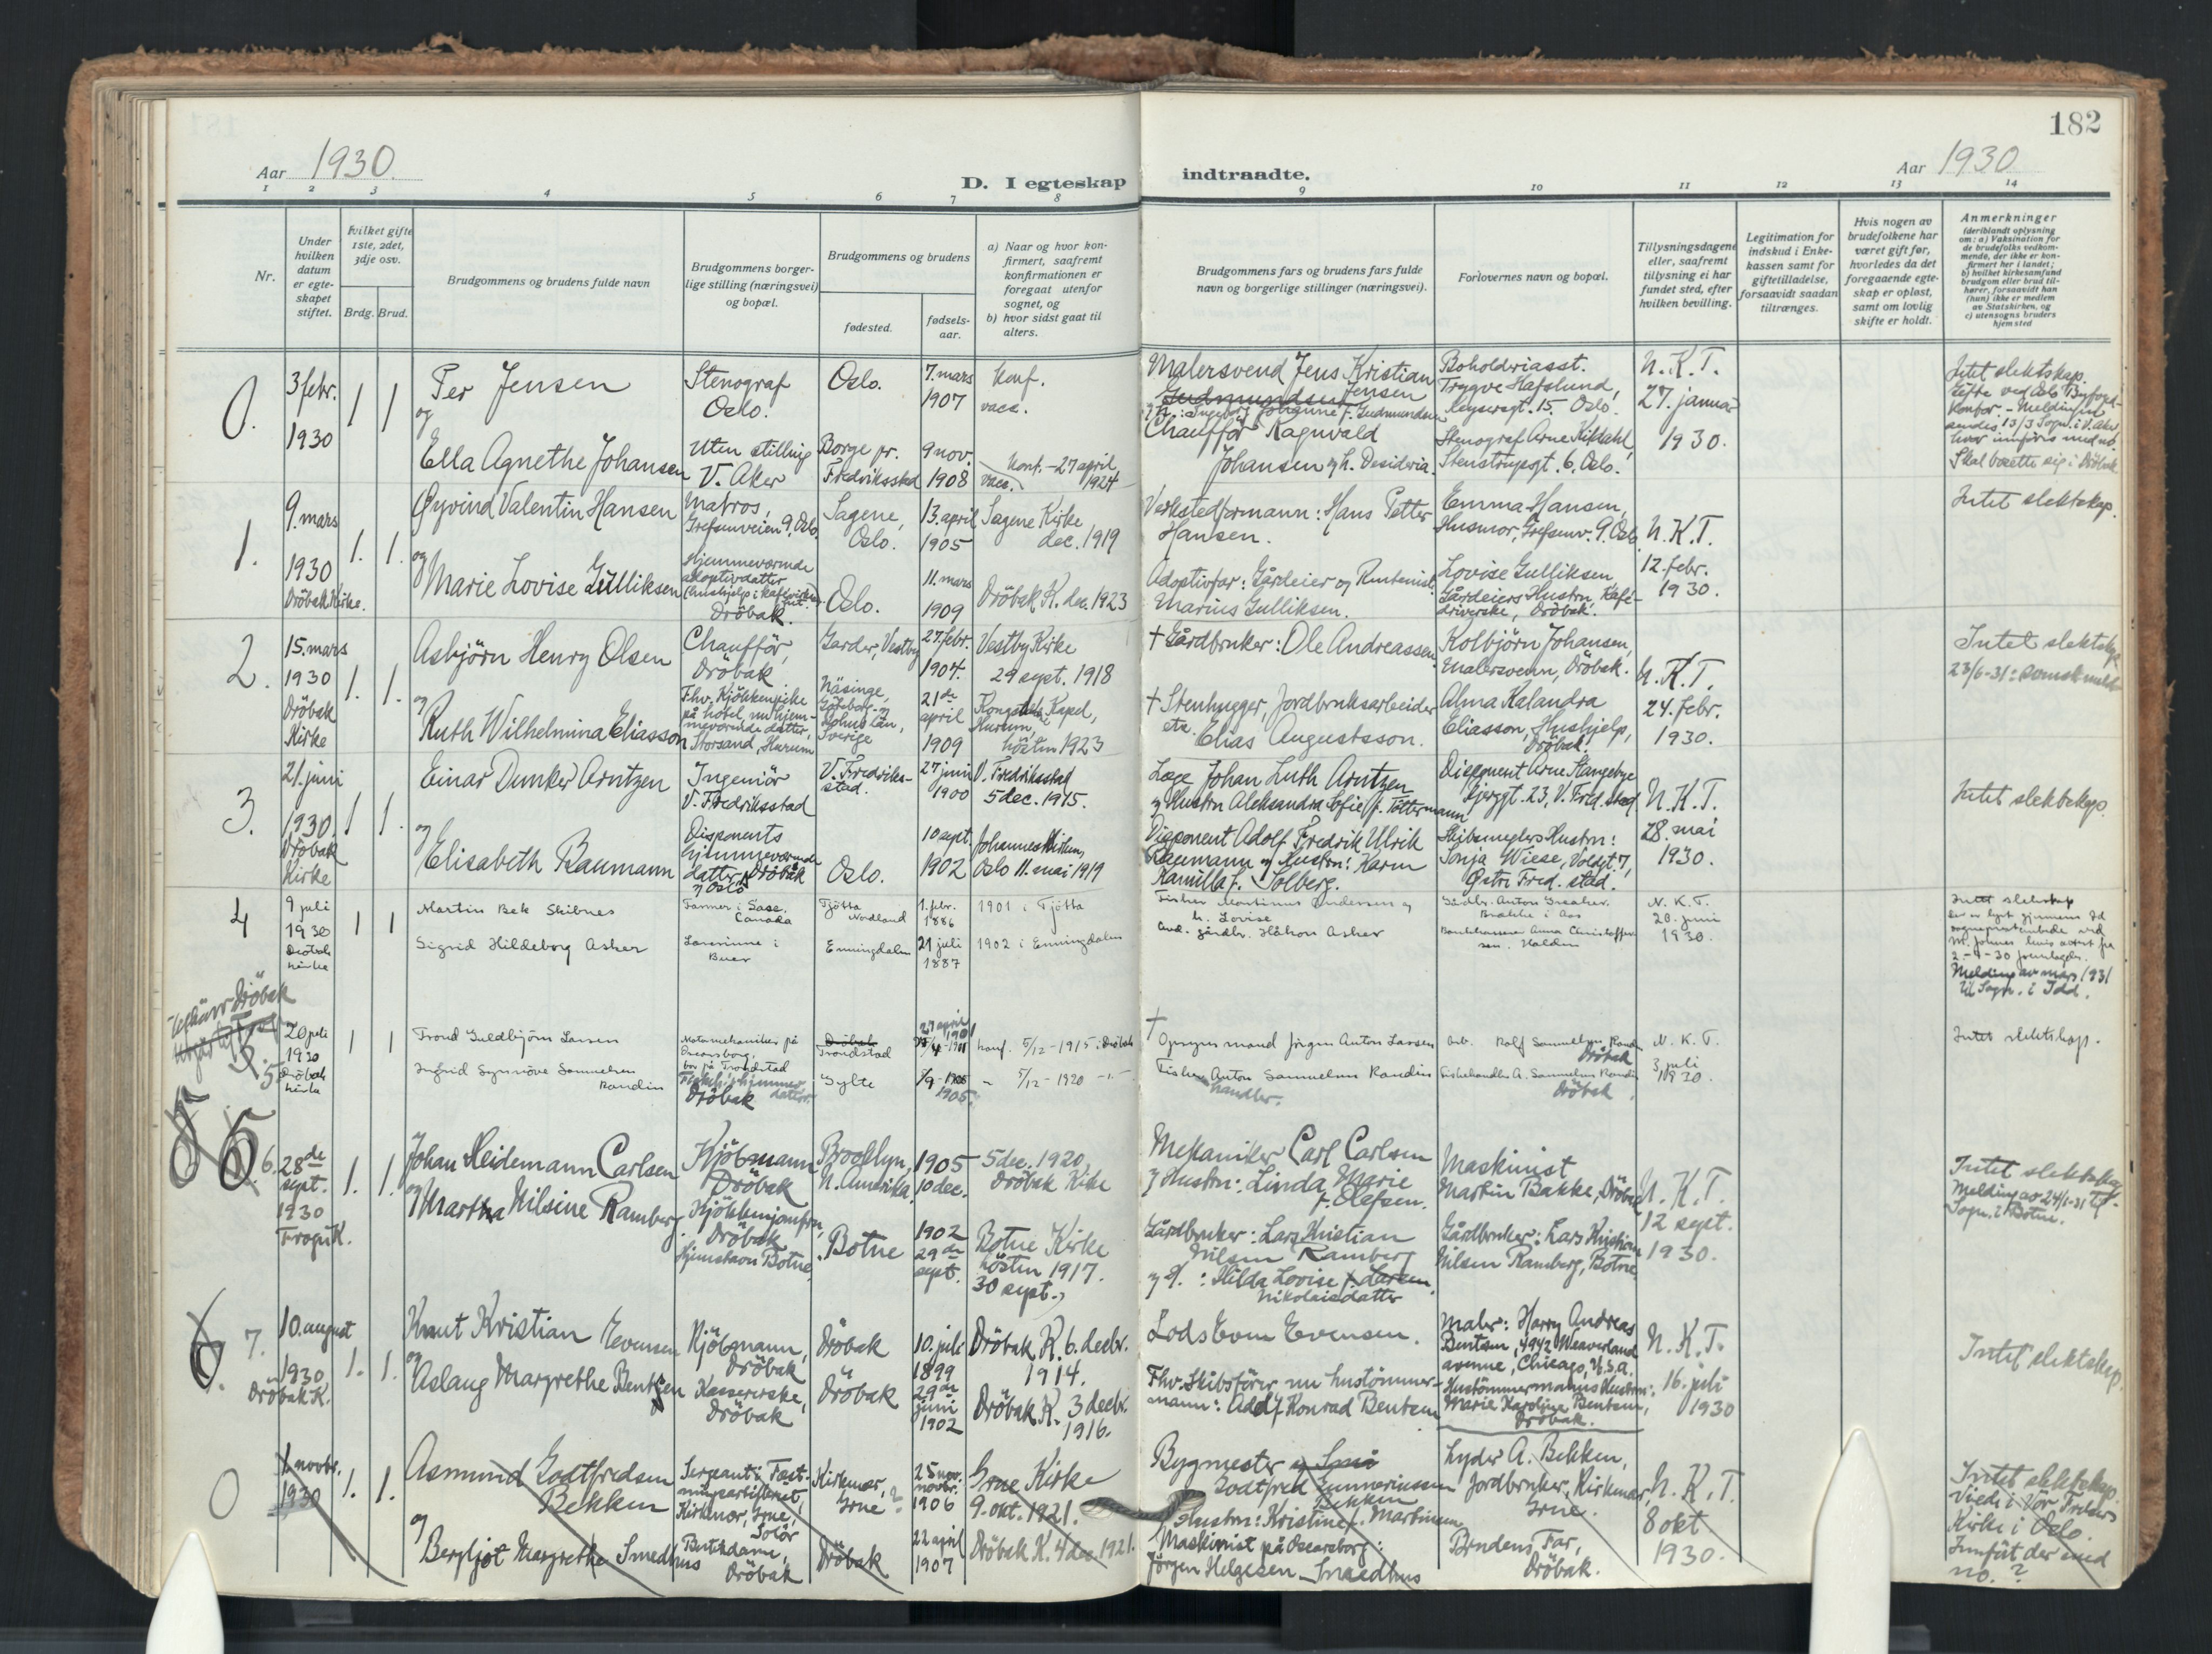 182
Aar 1930.
D. I egteskap indtraadte.
Aar 1930
1 2 3 4 5 6 7 8 9 10 11 12 13 14
Nr.
Under hvilken datum er egteskapet stiftet.
Hvilket gifte 1ste, 2det, 3dje osv.
Brdg. Brud.
Brudgommens og brudens fulde navn
Brudgommens borgerlige stilling (næringsvei) og bopæl.
Brudgommens og brudens
fødested.
fødselsaar.
a) Naar og hvor konfirmert, saafremt konfirmationen er foregaat utenfor sognet, og
b) hvor sidst gaat til alters.
Brudgommens fars og brudens fars fulde navn og borgerlige stillinger (næringsvei).
Forlovernes navn og bopæl.
Tillysningsdagene eller, saafremt tillysning ei har fundet sted, efter hvilken bevilling.
Legitimation for indskud i Enkekassen samt for giftetilladelse, forsaavidt saadan tiltrænges.
Hvis nogen av brudefolkene har været gift før, hvorledes da det foregaaende egteskap er opløst, samt om lovlig skifte er holdt.
Anmerkninger (deriblandt oplysning om: a) Vaksination for de brudefolks vedkommende, der ikke er konfirmert her i landet; b) hvilket kirkesamfund brudgom eller brud tilhører, forsaavidt han (hun) ikke er medlem av Statskirken, og c) utensogns bruders hjemsted
0.
3 febr.
1930
1 1
Per Jensen
og
Ella Agnethe Johansen
Stenograf
Oslo.
Uten stilling
V. Aker
Oslo.
Borge pr.
Fredriksstad
7. mars
1907
9 nov.
1908
Konf.
vacc.
Konf. - 27 april
vacc. 1924
Malersvend Jens Kristian
Jensen
Gudmundsen
og h.: Ingeborg Johanne f. Gudmundsen
Chauffør Ragnvald
Johansen og h. Desideria.
Trygve Hafslund,
15, Oslo.
Stenograf Arne
Stenstrupsgt. 6, Oslo.
N. K. T.
27. januar
1930.
Intet slektskap.
Skal bosette sig i Dröbak
1.
9. mars
1930
Dröbak Kirke.
1. 1.
Øyvind Valentin Hansen
og
Marie Lovise Gulliksen
Matros,
Grefsenveien 9, Oslo.
Hjemmeværende
adoptivdatter
Dröbak.
Sagene,
Oslo.
Oslo.
13. april
1905
11. mars
1909
Sagene Kirke
dec. 1919
Dröbak K. dec. 1923
Verkstedformann: Hans Petter
Hansen.
Adoptivfar: Gårdeier og Rentenist
Marius Gulliksen.
Emma Hansen,
Husmor, Grefsenv. 9. Oslo
Lovise Gulliksen,
Gårdeiers Hustru, Kafédriverske, Dröbak.
N. K. T.
12. febr.
1930.
Intet slektskap.
2.
15. mars
1930
Dröbak
Kirke
1. 1.
Asbjörn Henry Olsen
og
Ruth Wilhelmina Eliasson
Chauffør,
Dröbak
Fhv. Kjökkenpike
på hotel, nu hjemmeværende datter,
Storsand, Hurum
Garder, Vestby
Näsinge,
Göteborg og
Bohus län,
Sverige
27. febr.
1904.
21de
april
1909
Vestby Kirke
29 sept. 1918
Kapel,
Hurum,
hösten 1923
† Gårdbruker: Ole Andreassen.
† Stenhugger, Jordbruksarbeider
etc. Elias Augustsson.
Kolbjörn Johansen,
Malersvenn, Dröbak.
Alma Kalandra
Eliasson, Hushjelp,
Dröbak.
N. K. T.
24. febr.
1930.
Intet slektskap
23/6-31: svensk
3.
21. juni
1930.
Dröbak
Kirke
1 1.
Einar Dunker Arntzen
og
Elisabeth Baumann
Ingeniör
V. Fredriksstad
Disponents
hjemmeværende
datter, Dröbak
og Oslo
V. Fredriksstad.
Oslo.
27 juni
1900
10 sept.
1902
V. Fredriksstad
5 dec. 1915.
Johanneskirken,
Oslo 11. mai 1919
Læge Johan Luth Arntzen
og Hustru Aleksandra Sofie f. Töttermann
Disponent Adolf Fredrik Ulrik
Baumann og Hustru: Karen
Kamilla f. Solberg.
Disponent Arne Stangebye
23, V. Fred.stad
Skibsmeglers Hustru:
Sonja Wiese, Voldgt. 7,
Østre Fred.stad.
N. K. T.
28. mai
1930.
Intet slektskap.
4
9 juli
1930
Dröbak
kirke
1 1
Martin Bek Skibnes
Sigrid Hildeborg Asker
Farmer i Sask.
Canada
Lærerinne i
Buer
Tjötta
Nordland
Enningdalen
1. febr.
1886
21 juli
1887
1901 i Tjötta
1902 i Enningdalen
Fisker Martinus Andersen og
h. Lovise
Avd. gårdbr. Håkon Asker
Gårdbr. Anton
Brakke i Aas
Anna Christoffersen, Halden
N. K. T.
20. juni
1930.
Intet slektskap
Melding av mars 1931
til Sogn. i Idd.
Dröbak
5.
20 juli
1930
Dröbak
kirke
1 1
Trond Guldbjörn Larsen
Ingrid Synnöve Samuelsen
Randin
Motormekaniker på
Oscarsborg,
bor på Trondstad
Dröbak
Dröbak
Trondstad
Gylte
27 april
1901
1905
konf. 5/12 - 1915. Dröbak
" 5/12 - 1920 - " -
†
Opsynsmand Jörgen Anton Larsen
Fisker Anton Samuelsen Randin
handler.
Arb. Rolf Samuelsen Randin
Dröbak
Fiskehandler A. Samuelsen Randin
Dröbak
N. K. T.
3 juli
1930.
Intet slektskap.
6.
28de
sept.
1930
Frogn K.
1. 1.
Johan Heidemann Carlsen
og
Martha Nilsine Ramberg
Kjöbmann
Dröbak
Kjökkenjomfru,
Dröbak
Hjemstavn Botne.
Brooklyn,
N. Amerika.
Botne
1905
10 dec.
1902
29de
sept.
5 dec. 1920
Dröbak Kirke
Botne Kirke
hösten 1917.
30 sept.
Mekaniker Carl Carlsen
og Hustru: Linda Marie
f. Olafsen.
Gårdbruker: Lars Kristian
Nilsen Ramberg
og H.: Hilda Lovise f. Larsen
Nikolaisdatter
Maskinist
Martin Bakke, Dröbak
Gårdbruker: Lars Kristian
Nilsen Ramberg, Botne
N. K. T.
12 sept.
1930.
Intet slektskap
Melding av 24/1-31 til
Sogn. i Botne.
7.
10. august
1930
Dröbak K.
1. 1.
Knut Kristian Evensen
og
Aslaug Margrethe Bentsen
Kjöbmann,
Dröbak
Kassererske,
Dröbak
Dröbak
Dröbak
10. juli
1899
29de
juni
1902
Dröbak K. 6. decbr.
1914.
Dröbak K. 3 decbr.
1916.
Lods Even Evensen.
Fhv. Skibsförer nu hustömmermann: Adolf Konrad Bentsen
Maler: Harry Andreas
Bentsen, 4942 Weaverland
avenue, Chicago, U.S.A.
Hustömmermanns Hustru:
Marie Karoline Bentsen,
Dröbak.
N. K. T.
16. juli
1930
Intet slektskap.
0
1. novbr.
1930
1. 1.
Asmund Godtfredsen
Bekken
og
Bergljot Margrethe Smedhus
Sersjant i Fæstningsartilleriet,
Kirkenær, Grue,
Solör
Butikdame,
Dröbak
Kirkenær,
Grue
Dröbak
25 nov.
novbr.
1906
22 april
1907
Grue Kirke
9. okt. 1921.
Dröbak K. 4 dec. 1921.
Bygmester
Godtfred Gunneriussen
Bekken
og Hustru: Kristine f. Martinsen
Maskinist på Oscarsborg:
Jörgen Helgesen Smedhus
Lyder A. Bekken,
Jordbruker, Kirkenær,
Grue.
Brudens Far,
Dröbak.
N. K. T.
8 okt
1930.
Intet slektskap.
Viedes i Vor Frelsers
Kirke i Oslo.
Innfört der med
no. ?